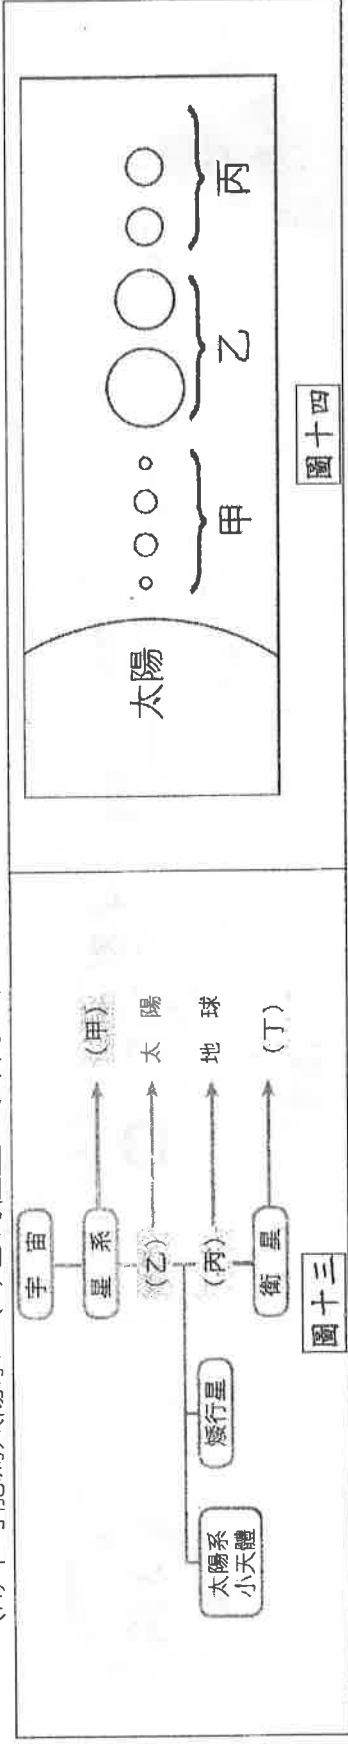 宇宙
星系
(甲)
(乙)
太陽
(丙)
地球
衛星
(丁)
矮行星
太陽系
小天體
圖十三
太陽
甲
乙
丙
圖十四